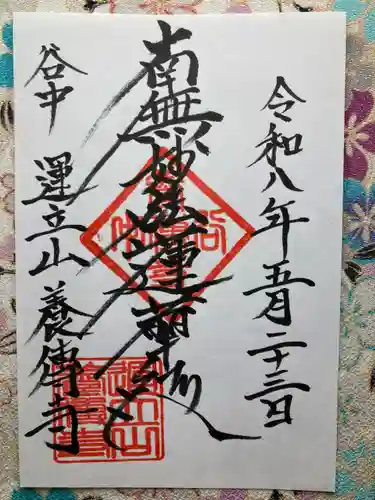 令和八年五月二十三日
南無妙法蓮華経
谷中
運立山 養傳寺